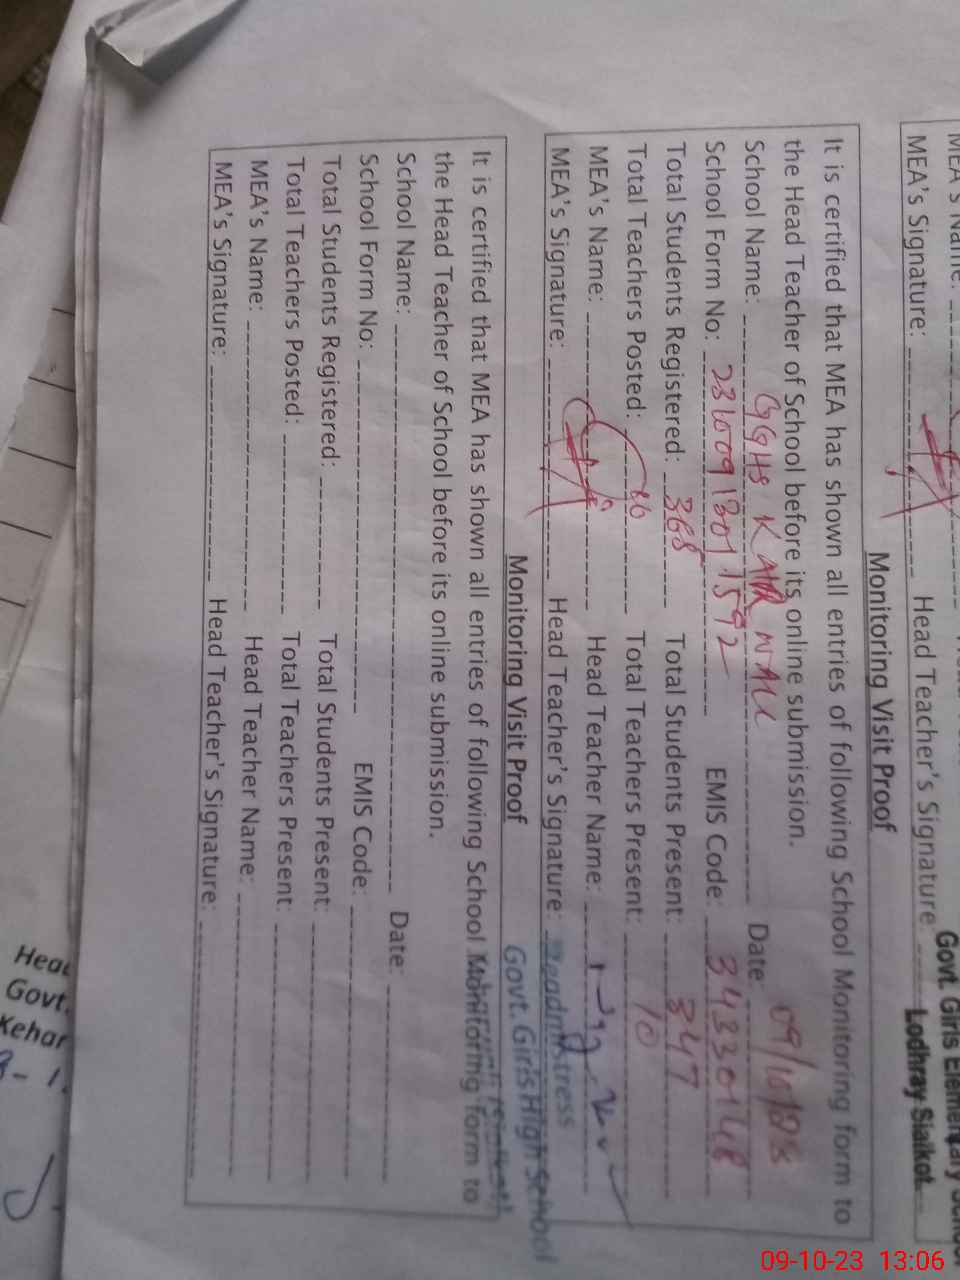 MEA's Name:
MEA's Signature: Head Teacher's Signature:
Govt. Girls Elementary School
Lodhray Sialkot
Monitoring Visit Proof
It is certified that MEA has shown all entries of following School Monitoring form to
the Head Teacher of School before its online submission.
School Name: GGHS Date: 09/10/23
School Form No: EMIS Code: 34330148
Total Students Registered: 368 Total Students Present: 347
Total Teachers Posted: Total Teachers Present: 10
MEA's Name: Head Teacher Name:
MEA's Signature: Head Teacher's Signature: Headmistress
Govt. Girls High School
Monitoring Visit Proof
It is certified that MEA has shown all entries of following School Monitoring form to
the Head Teacher of School before its online submission.
School Name: Date:
School Form No: EMIS Code:
Total Students Registered: Total Students Present:
Total Teachers Posted: Total Teachers Present:
MEA's Name: Head Teacher Name:
MEA's Signature: Head Teacher's Signature:
Head
Govt.
Kehar
09-10-23 13:06